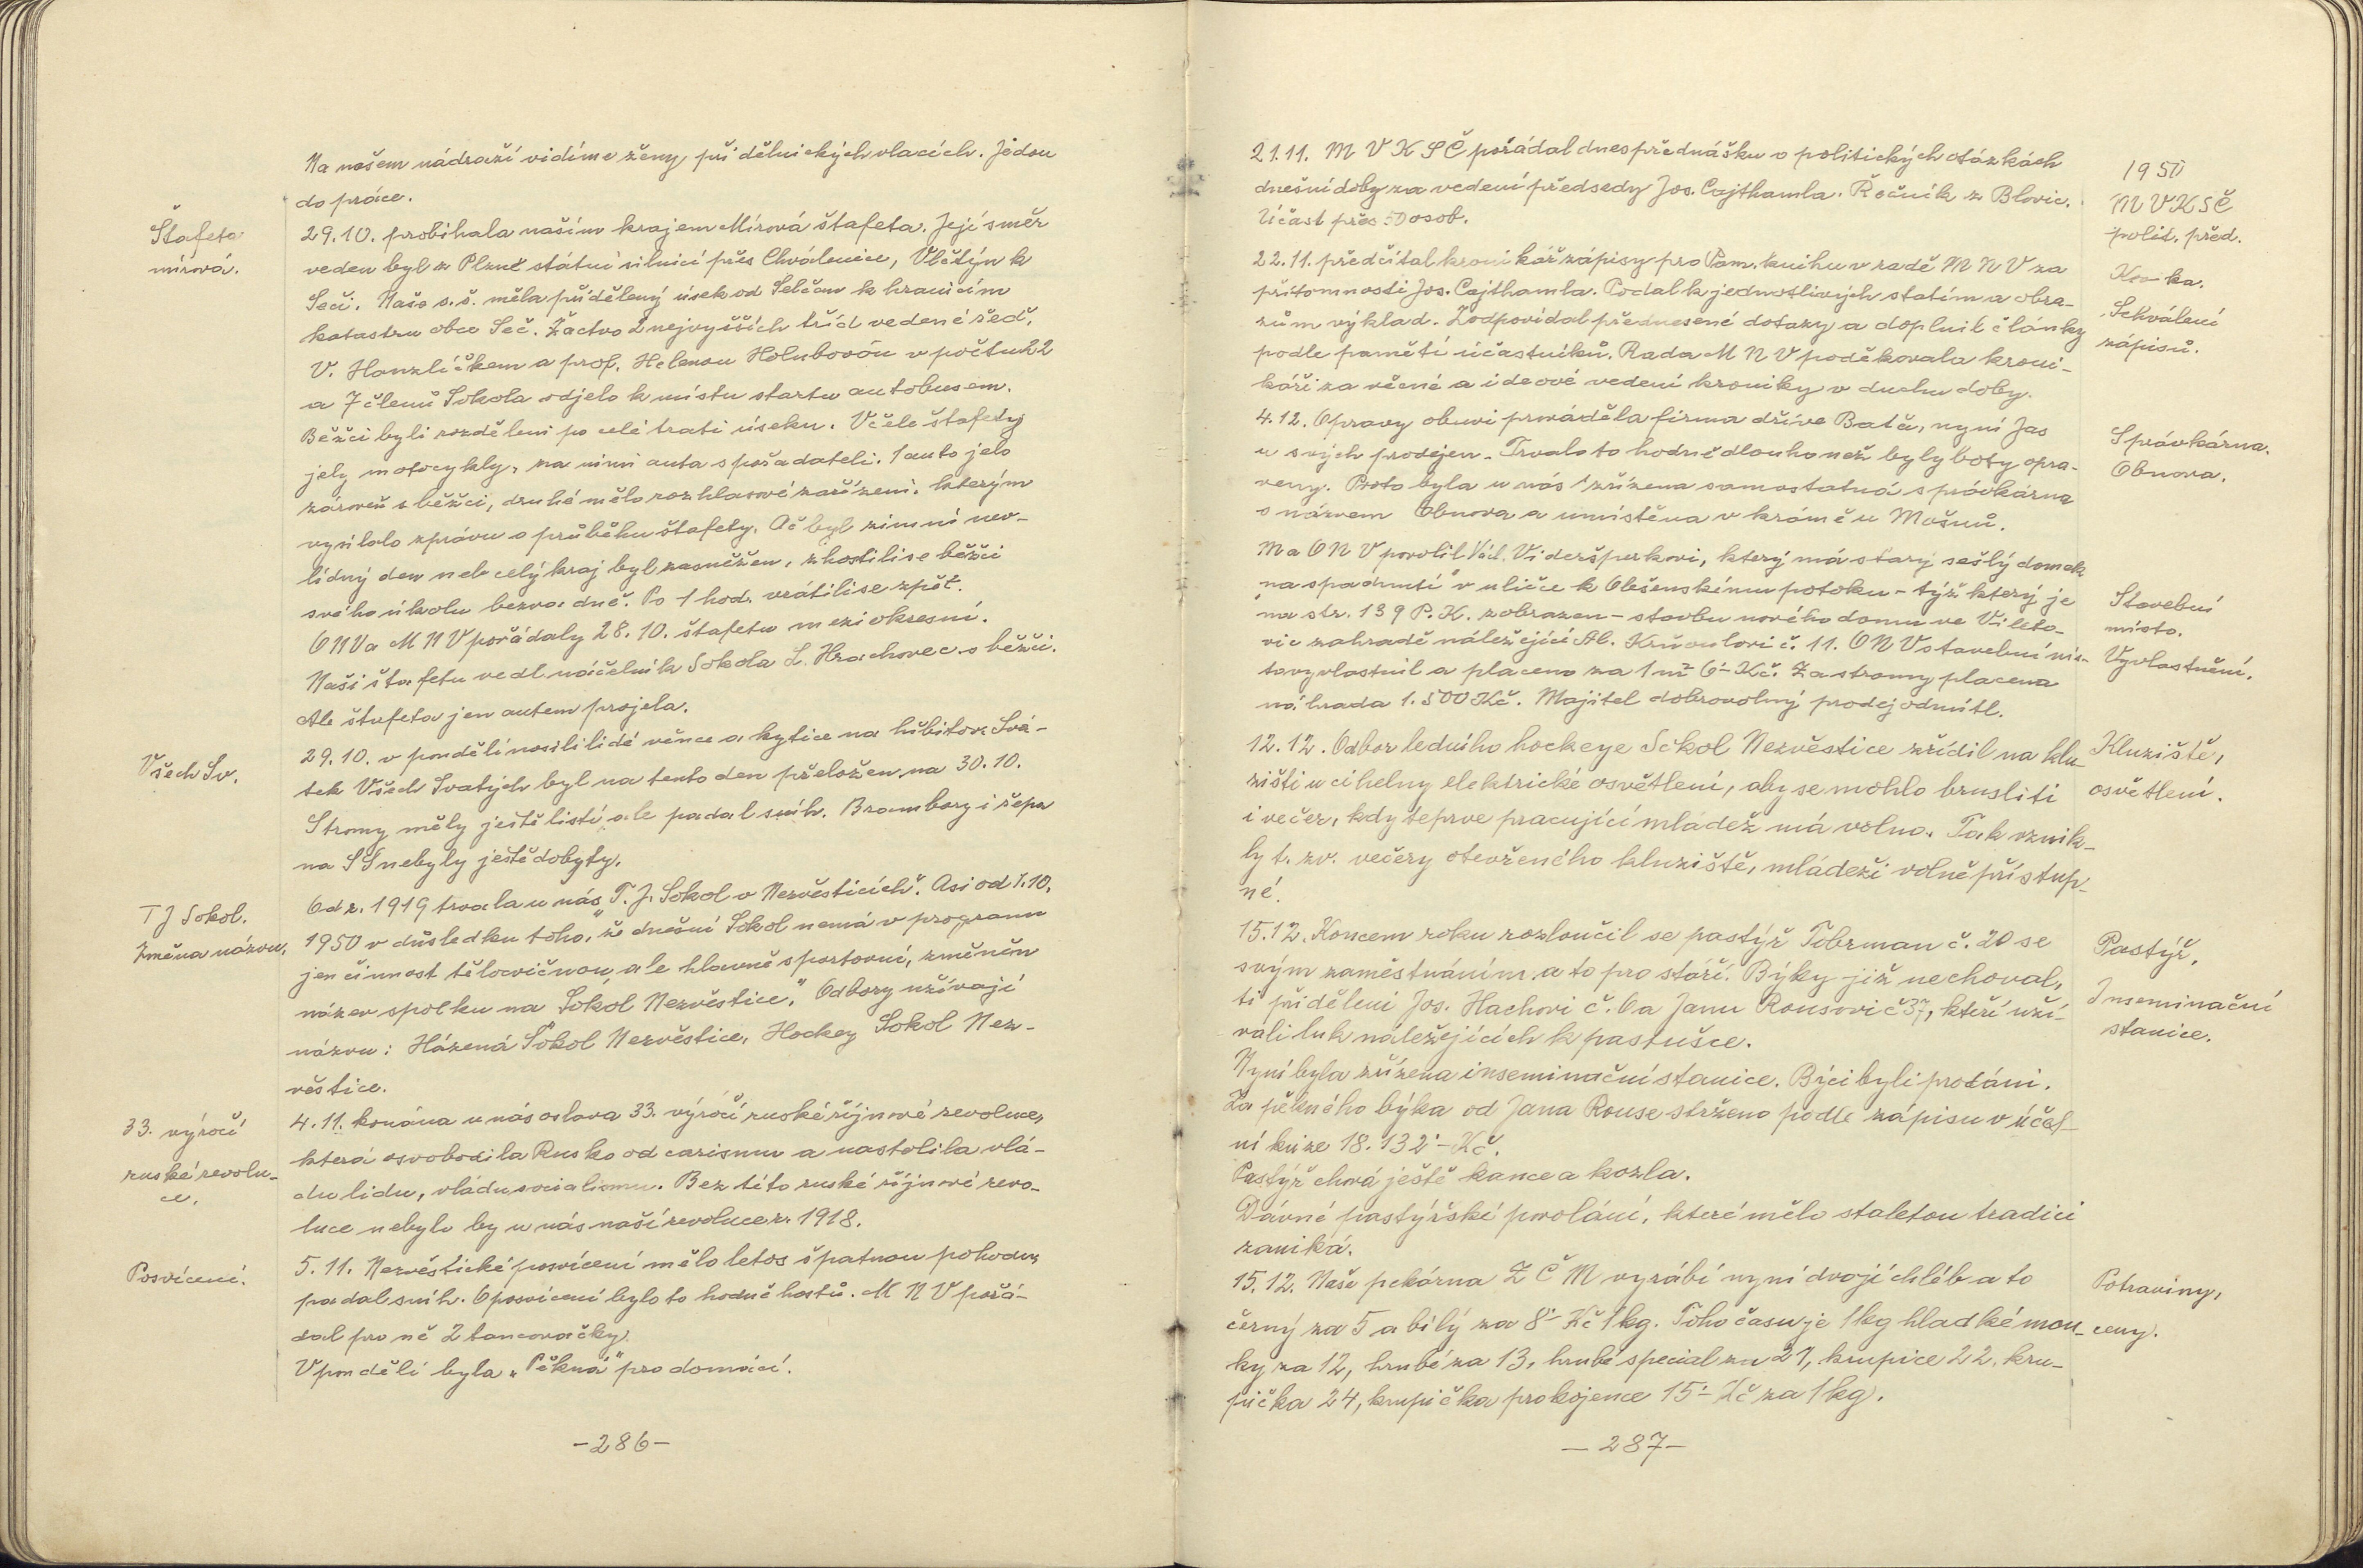 Na našem nádraží vidíme ženy, při dělnických vlacích. Jedou
do práce.
Štafeta
mírová.
29.10. probíhala naším krajem Mírová štafeta. Její směr
veden byl z Plzně státní silnicí přes Chválenice, Vlčtýn k
Seči. Naše s.š. měla přidělený úsek odŽelčan k hranicím
katastru obce Seč. Žactvo 2 nejvyšších tříd vedené řed.
V. Hanzlíčkem a prof. Helenou Holubovou v počtu 22
a 7 členů Sokola odjelo k místu startu autobusem.
Běžci byli rozděleni po celé trati úseku. V čele štafety
jely motocykly, za nimi auta s pořadateli. 1 auto jelo
zároveň s běžci, druhé mělo rozhlasové zařízení, kterým
vysílalo zprávu o průběhu štafety. Ač byl zimní nev-
lídný den neb celý kraj byl zasněžen, zhostili se běžci
svého úkolu bezvadně. Po 1 hod. vrátili se zpět.
ONV a MNV pořádaly 28.10. štafetu meziokresní.
Naši štafetu vedl náčelník Sokola L. Hrachovec s běžci.
Ale štafeta jen autem projela.
Všech Sv.
29.10. v pondělí nosili lidé věnce a kytice na hřbitov. Svá-
tek Všech Svatých byl na tento den přeložen na 30.10.
Stromy měly ještě listí ale padal sníh. Brambory i řepa
na SS nebyly ještě dobyty.
TJ Sokol.
Změna názvu.
Od r. 1919 trvala u nás „T. J. Sokol v Nezvěsticích". Asi od 1.10.
1950 v důsledku toho, že dnešní Sokol nemá v programu
jen činnost tělocvičnou, ale hlavně sportovní, změněn
název spolku na „Sokol Nezvěstice". Odbory užívají
názvu: Házená Sokol Nezvěstice, Hockey Sokol Nez-
věstice.
33. výročí
ruské revolu-
ce.
4.11. konána u nás oslava 33. výročí ruské říjnové revoluce,
která osvobodila Rusko od carismu a nastolila vlá-
du lidu, vládu socialismu. Bez této ruské říjnové revo-
luce nebylo by u nás naší revoluce r. 1918.
Posvícení.
5.11. Nezvěstické posvícení mělo letos špatnou pohodu,
padal sníh. O posvícení bylo to hodně hostů. MNV pořá-
dal pro ně 2 tancovačky.
V pondělí byla „Pěkná" pro domácí.
-286-
1950
M V KSČ
polit. před.
21.11. M V KSČ pořádal dnes přednášku o politických otázkách
dnešní doby za vedení předsedy Jos. Cajthamla. Řečník z Blovic.
Účast přes 50 osob.
Schválení
zápisů.
22.11. předčítal kronikář zápisy pro Pam. knihu v radě MNV za
přítomnosti Jos. Cajthamla. Podal k jednotlivých statím a obra-
zům výklad. Zodpovídal přednesené dotazy a doplnil články
podle pamětí účastníků. Rada MNV poděkovala kroni-
káři za věcné a ideové vedení kroniky v duchu doby.
Správkárna.
Obnova.
4.12. Opravy obuvi prováděla firma dříve Bať a, nyní Jas
u svých prodejen. Trvalo to hodně dlouho než byly boty opra-
veny. Proto byla u nás zřízena samostatná správkárna
s názvem Obnova a umístěna v krámě u Mošnů.
Stavební
místo.
Vyvlastnění.
Ma ONV povolil Václ. Videršperkovi, který má starý sešlý domek
na spadnutí v uličce k Olešenskému potoku - týž který je
na str. 139 P. K. zobrazen - stavbu nového domu ve Vileto-
vic zahradě náležející Al. Křivoulovi č. 11. ONV stavební mís-
to vyvlastnil a placeno za 1 m² 6·- Kč. Za stromy placena
náhrada 1.500 Kč. Majitel dobrovolný prodej odmítl.
Kluziště,
osvětlení.
12.12. Odbor ledního hockeye Sokol Nezvěstice zřídil na klu-
zišti u cihelny elektrické osvětlení, aby se mohlo brusliti
i večer, kdy teprve pracující mládež má volno. Tak vznik-
ly t. zv. večery otevřeného kluziště, mládeži volně přístup-
né.
Pastýř.
Inseminační
stanice.
15.12. Koncem roku rozloučil se pastýř Tobrman č. 20 se
svým zaměstnáním a to pro stáří. Býky již nechoval,
ti přiděleni Jos. Hachovi č. 6 a Janu Rousovi č 37, kteří uží-
vali luk náležejících k pastušce.
Nyní byla zřízena inseminační stanice. Býci byli prodáni.
Za pěkného býka od Jana Rouse strženo podle zápisu v účet-
ní knize 18.132·- Kč.
Pastýř chová ještě kance a kozla.
Dávné pastýřské povolání, které mělo staletou tradici
zaniká.
Potraviny,
ceny.
15.12. Naše pekárna ZČM vyrábí nyní dvojí chléb a to
černý za 5 a bílý za 8·- Kč 1kg. Toho času je 1kg hladké mou-
ky za 12, hrubé za 13, hrubé special za 21, krupice 22, kru-
pička 24, krupička pro kojence 15·- Kč za 1kg.
-287-